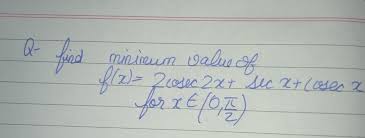 Q- find minimum value of
f(x)= 2cosec2x + sec x + cosec x
for x ∈ (0, π/2)